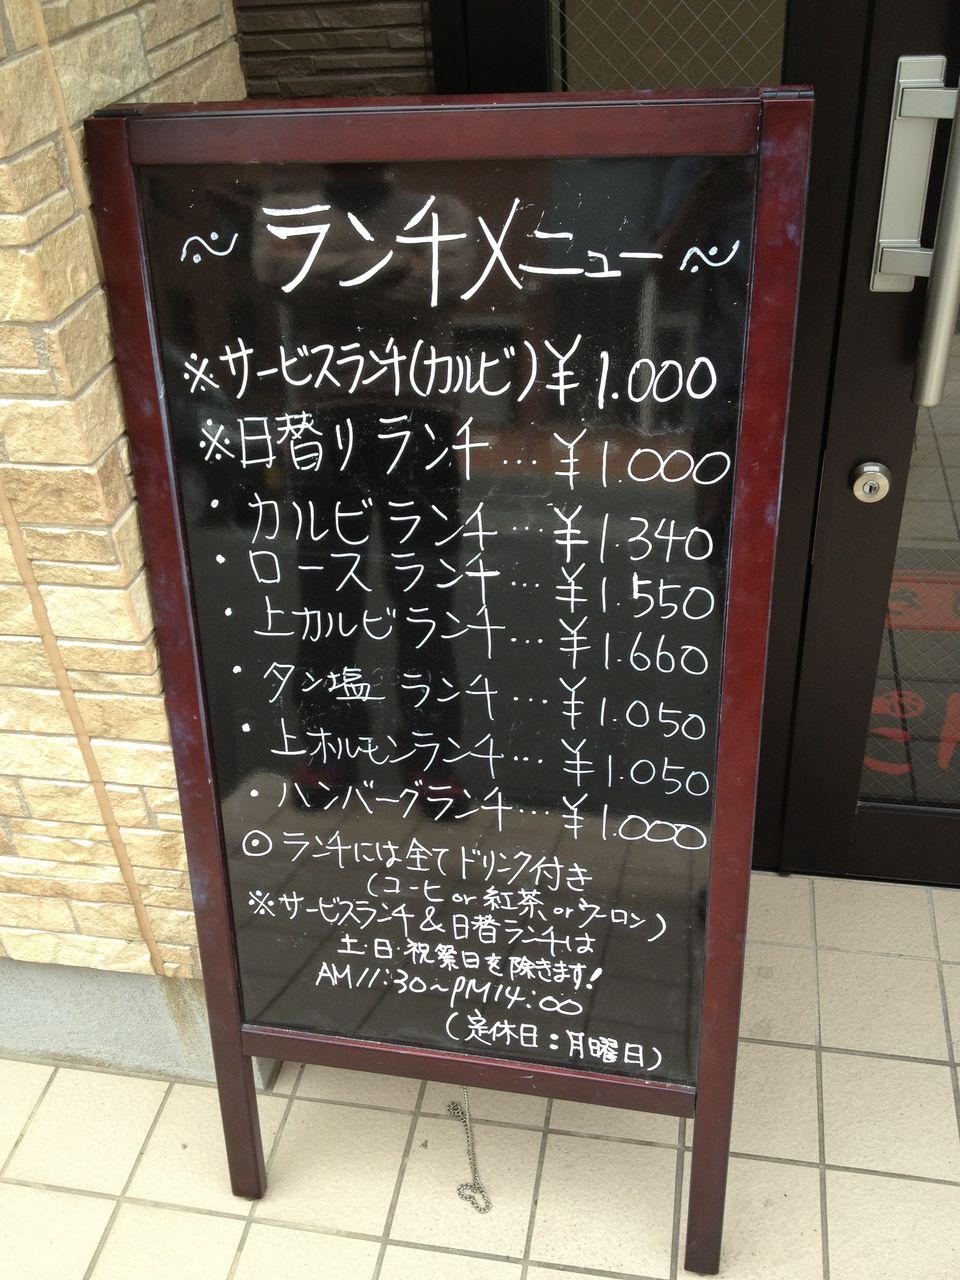 ~ ランチメニュー ~
※サービスランチ(カルビ)¥1.000
※日替りランチ…¥1.000
・カルビランチ…¥1.340
・ロースランチ…¥1.550
・上カルビランチ…¥1.660
・タン塩ランチ…¥1.050
・上ホルモンランチ…¥1.050
・ハンバーグランチ…¥1.000
◎ランチには全てドリンク付き
(コーヒ or 紅茶、orウーロン)
※サービスランチ&日替ランチは
土・日・祝祭日を除きます!
AM11:30~PM14:00
(定休日:月曜日)